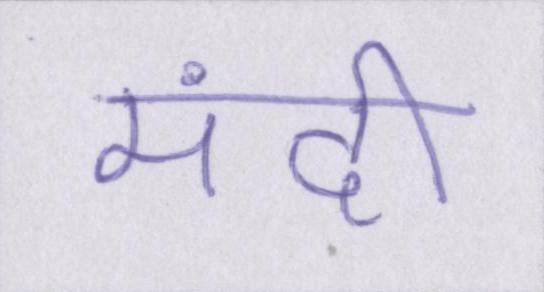 मंदी